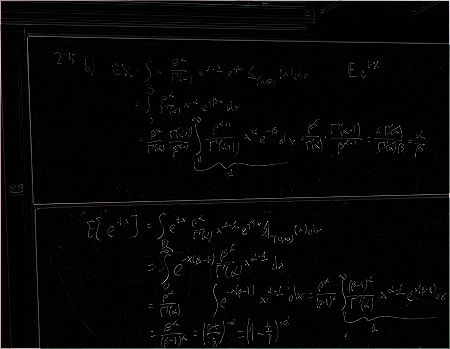 2.5 b) EX = ∫ x β^α/Γ(α) x^(α-1) e^(-βx) 1_(0,∞)(x) dx     E e^(tX)
= ∫ β^α/Γ(α) x^α e^(-βx) dx
= β^α/Γ(α) Γ(α+1)/β^(α+1) ∫ β^(α+1)/Γ(α+1) x^α e^(-βx) dx = β^α/Γ(α) · Γ(α+1)/β^(α+1) = α Γ(α)/Γ(α)β = α/β
1
E[e^(tX)] = ∫ e^(tx) β^α/Γ(α) x^(α-1) e^(-βx) 1_(0,∞)(x) dx
= ∫ e^(-x(β-t)) β^α/Γ(α) x^(α-1) dx
= β^α/Γ(α) ∫ e^(-x(β-t)) x^(α-1) dx = β^α/(β-t)^α ∫ (β-t)^α/Γ(α) x^(α-1) e^(-x(β-t)) dx
= β^α/(β-t)^α = (β-t/β)^(-α) = (1 - t/β)^(-α)
1